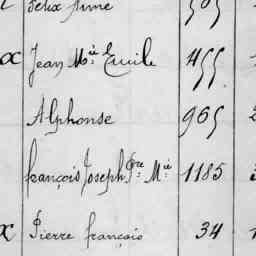 Felix Aimé 505
x Jean Mie Emile 455
Alphonse 965
François Joseph Pre Mie 1185
x Pierre françois 34